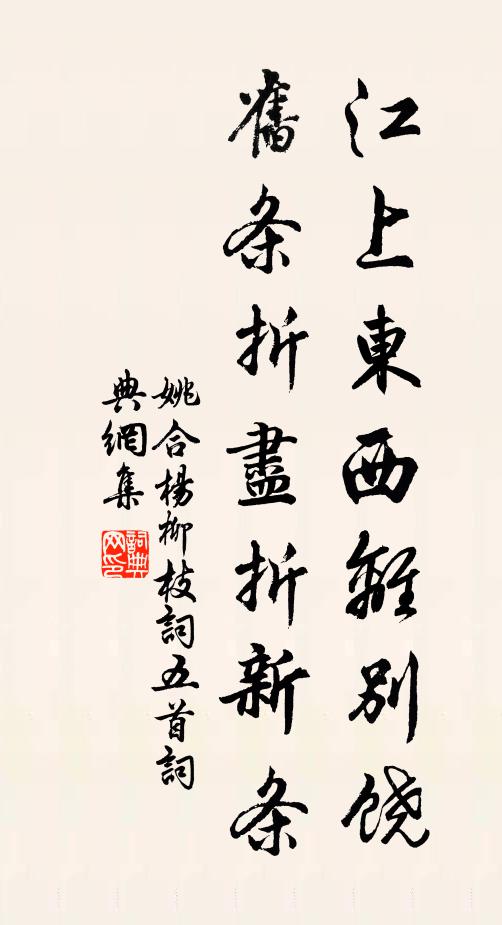 江上東西離别饶
舊条折盡折新条
姚合楊柳枝詞五首詞
典網集
詞典网印